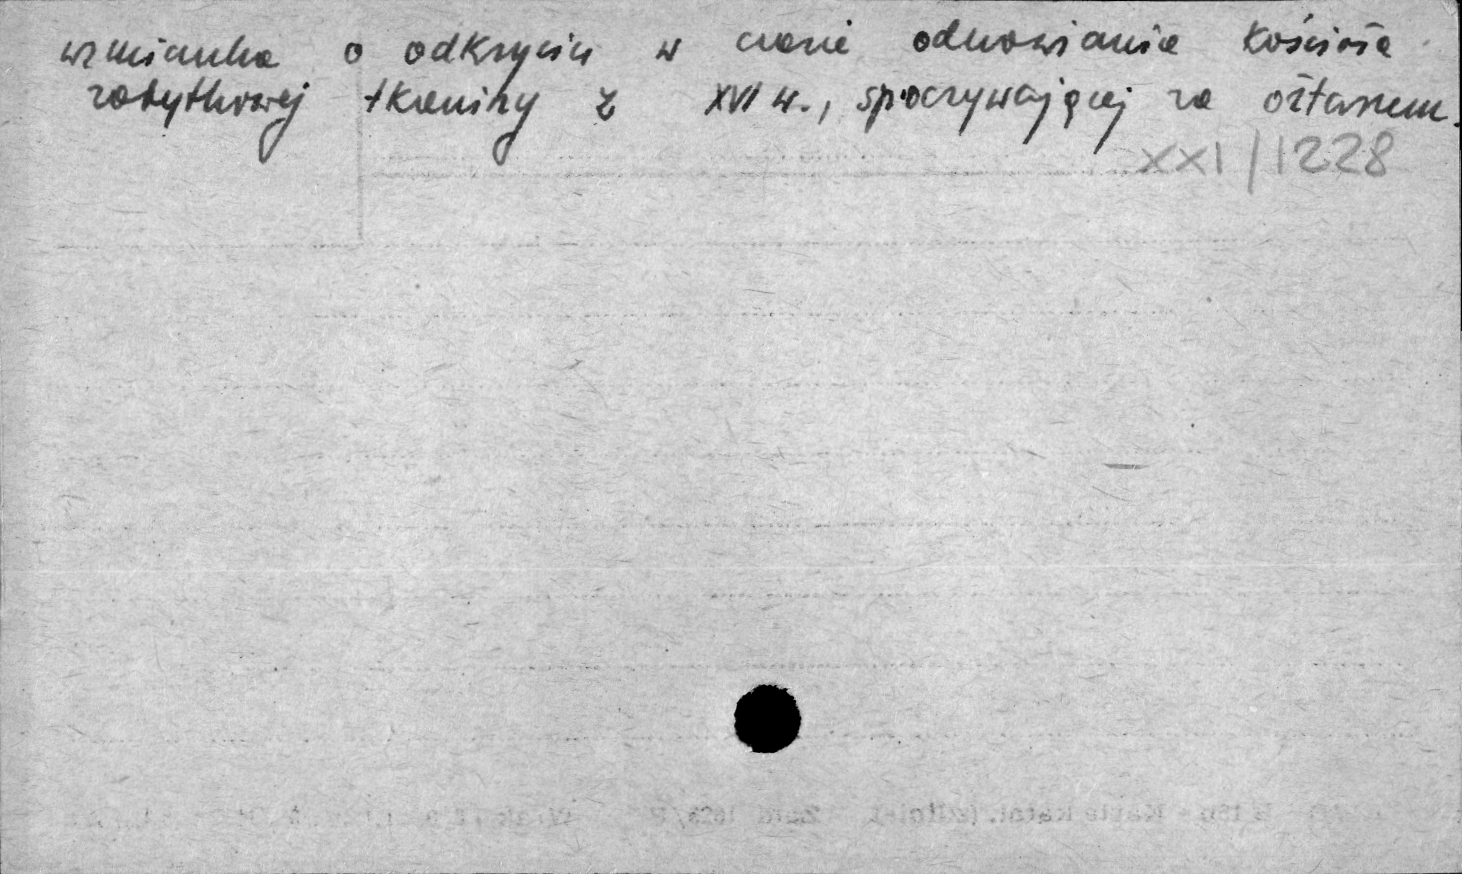 wzmianka o odkryciu w czasie odnawiania kościoła
zabytkowej tkaniny z XVI w., spoczywającej za ołtarzem.
XXI/1228